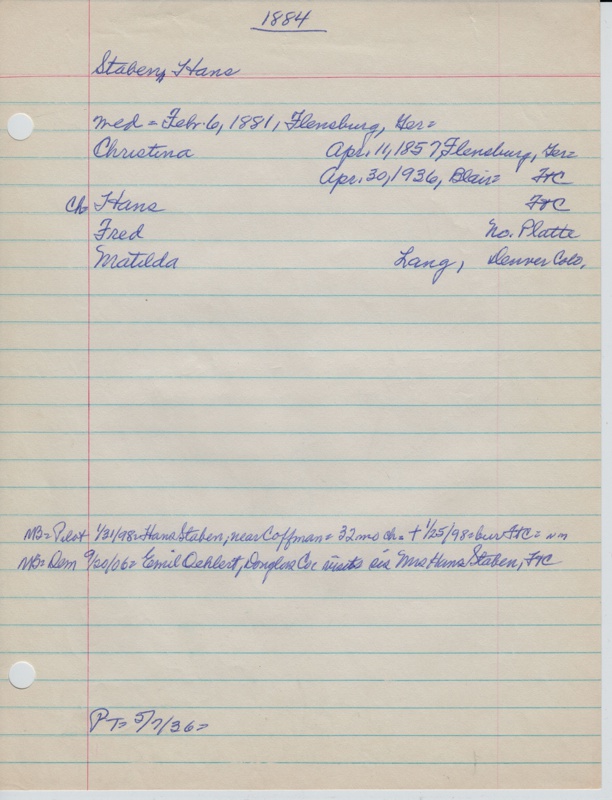 1884
Staben, Hans
med = Febr. 6, 1881, Flensburg, Ger=
Christina Apr. 11, 1857 Flensburg, Ger=
Apr. 30, 1936, Blair= FtC
ch Hans FtC
Fred No. Platte
Matilda Lang, Denver Colo.
NB= Pilot 1/31/98= Hans Staben, near Coffman= 32 mo ch= + 1/25/98= bur FtC= nm
NB= Dem 9/20/06= Emil Oehlert, Douglas Co= visits sis Mrs Hans Staben, FtC
PT= 5/7/36=